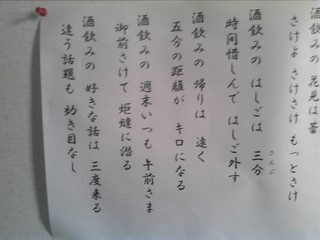 酒飲みの 花見は
さけよ さけさけ もっとさけ
酒飲みの はしごは 三分
さんぶ
時間惜しんで はしご外す
酒飲みの 帰りは 遠く
五分の距離が キロになる
酒飲みの 週末いつも 午前さま
御前さけて 炬燵に潜る
酒飲みの 好きな話は 三度来る
違う話題も 効き目なし